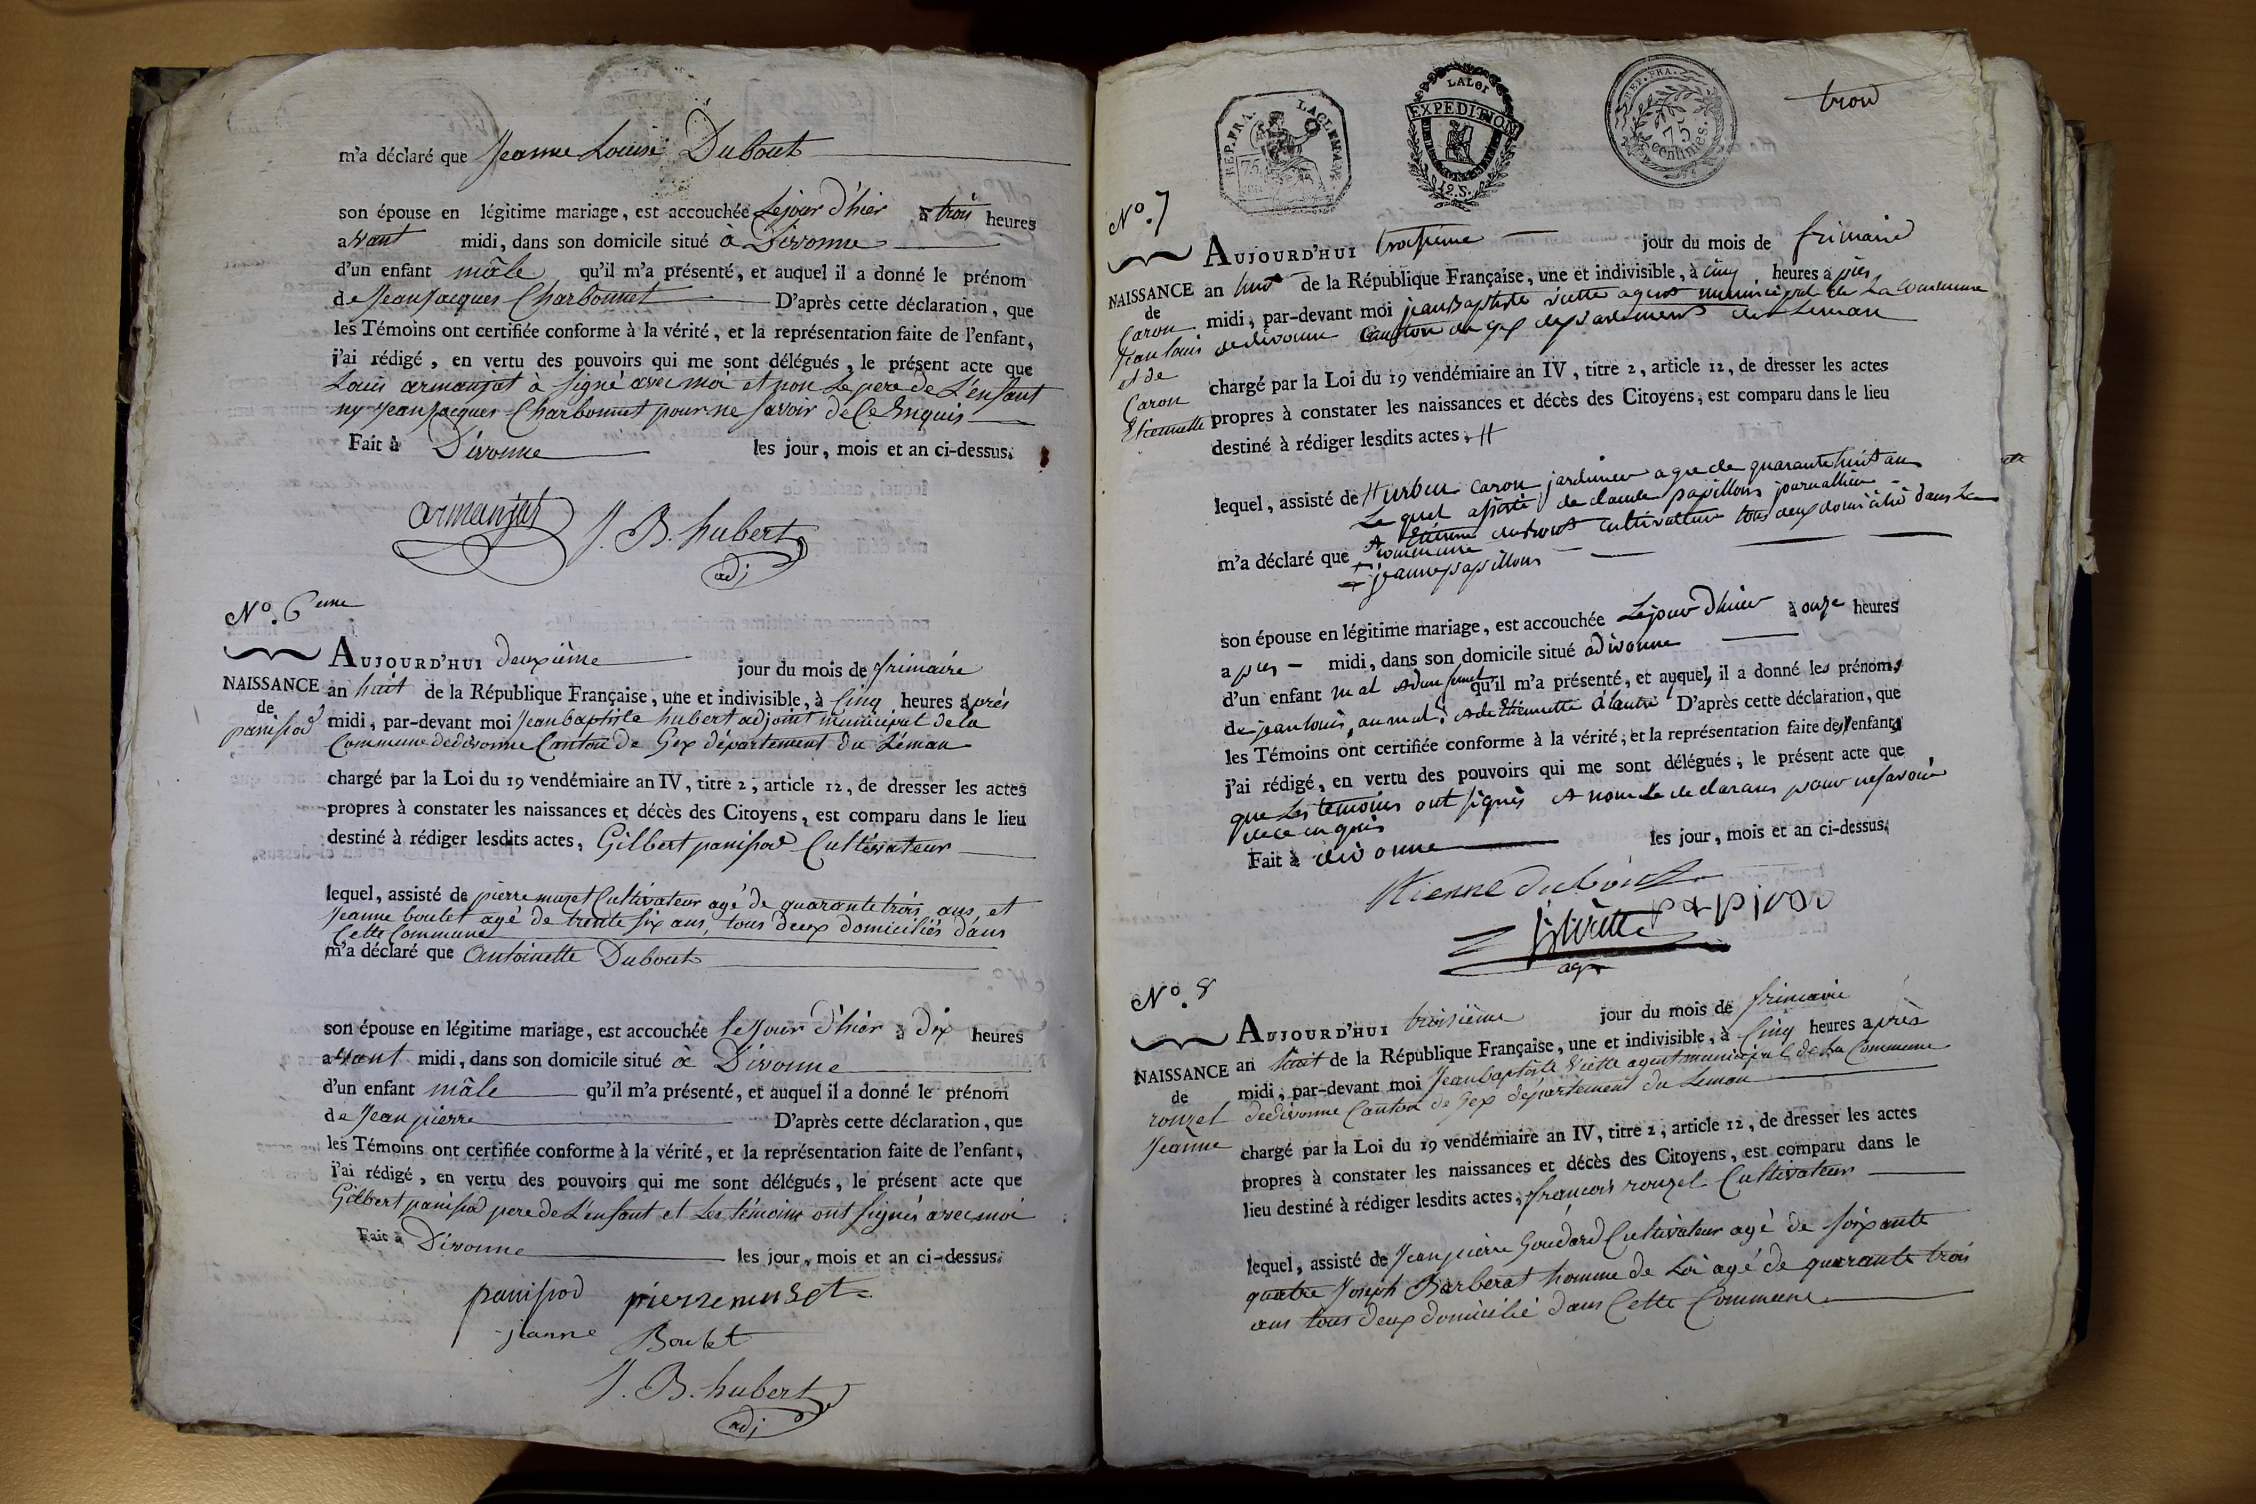 m'a déclaré que Jeanne Louise Dubout
son épouse en légitime mariage, est accouchée Le jour d'hier à trois heures
avant midi, dans son domicile situé à Divonne
d'un enfant mâle qu'il m'a présenté, et auquel il a donné le prénom
de Jean Jacques Charbonnet D'après cette déclaration, que
les Témoins ont certifiée conforme à la vérité, et la représentation faite de l'enfant,
j'ai rédigé, en vertu des pouvoirs qui me sont délégués, le présent acte que
Louis armanjat à signé avec moi et non Le pere de L'enfant
ny Jean Jacques Charbonnet pour ne savoir de Ce Enquis
Fait à Divonne les jour, mois et an ci-dessus.
armanjat J. B. hubert
adj
N°. 6eme
AUJOURD'HUI deuxième jour du mois de frimaire
NAISSANCE an huit de la République Française, une et indivisible, à Cinq heures après
de
panissod midi, par-devant moi Jean baptiste hubert adjoint municipal de la
Commune de divonne Canton de Gex département du Léman
chargé par la Loi du 19 vendémiaire an IV, titre 2, article 12, de dresser les actes
propres à constater les naissances et décès des Citoyens, est comparu dans le lieu
destiné à rédiger lesdits actes, Gilbert panissod Cultivateur
lequel, assisté de pierre muset Cultivateur agé de quarante trois ans et
Jeanne boulet agé de trente six ans, tous deux domiciliés dans
Cette Commune
m'a déclaré que Antoinette Dubout
son épouse en légitime mariage, est accouchée le Jour d'hier à Dix heures
avant midi, dans son domicile situé à Divonne
d'un enfant mâle qu'il m'a présenté, et auquel il a donné le prénom
de Jean pierre D'après cette déclaration, que
les Témoins ont certifiée conforme à la vérité, et la représentation faite de l'enfant,
j'ai rédigé, en vertu des pouvoirs qui me sont délégués, le présent acte que
Gilbert panissod pere de L'enfant et Les témoins ont signés avec moi
Fait à Divonne les jour, mois et an ci-dessus.
panissod pierre muset
jeanne Boulet
J. B. hubert
adj
REP. FRA. 75
EXPEDITION
12. S.
REP. FRA.
75
centimes.
N°. 7
AUJOURD'HUI jour du mois de frimaire
NAISSANCE an huit de la République Française, une et indivisible, à cinq heures apres
de
Caron midi, par-devant moi jean Baptiste viette agent municipal de La Commune
Jean louis de divonne Canton de gex departement du Leman
et de
Caron
Etiennette
chargé par la Loi du 19 vendémiaire an IV, titre 2, article 12, de dresser les actes
propres à constater les naissances et décès des Citoyens, est comparu dans le lieu
destiné à rédiger lesdits actes,
lequel, assisté de urbin Caron jardinier agée de quarante huit an
Le quel assisté de claude papillon journallier
Etienne dubout cultivateur tous deux domicilié dans La
commune
m'a déclaré que
jeanne papillon
son épouse en légitime mariage, est accouchée Le jour dhier à onze heures
apres midi, dans son domicile situé a divonne
d'un enfant mal qu'il m'a présenté, et auquel, il a donné les prénoms
de jean louis au mal, Etiennette à lautre D'après cette déclaration, que
les Témoins ont certifiée conforme à la vérité, et la représentation faite des enfants
j'ai rédigé, en vertu des pouvoirs qui me sont délégués, le présent acte que
que Les temoins ont signés et non Le declarans pour ne savoir
de ce enquis
Fait à divonne les jour, mois et an ci-dessus.
Etienne dubout
viette
agt
N°. 8
AUJOURD'HUI troisième jour du mois de frimaire
NAISSANCE an huit de la République Française, une et indivisible, à Cinq heures après
de
rouzel midi, par-devant moi Jean baptiste Viette agent municipal de La Commune
Jeanne de divonne Canton de Gex département du Leman
chargé par la Loi du 19 vendémiaire an IV, titre 2, article 12, de dresser les actes
propres à constater les naissances et décès des Citoyens, est comparu dans le
lieu destiné à rédiger lesdits actes, francois rouzel Cultivateur
lequel, assisté de Jean pierre Goudard Cultivateur agé de soixante
quatre Joseph Barberat homme de Loi agé de quarante trois
ans tous deux domicilié dans Cette Commune